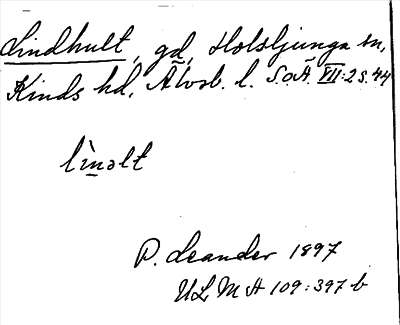 Lindhult, gd, Holsljunga sn,
Kinds hd, Älvsb. l. S.o.Ä. VII:2 s. 44
lìnəlt
P. Leander 1897
ULMA 109:397 b